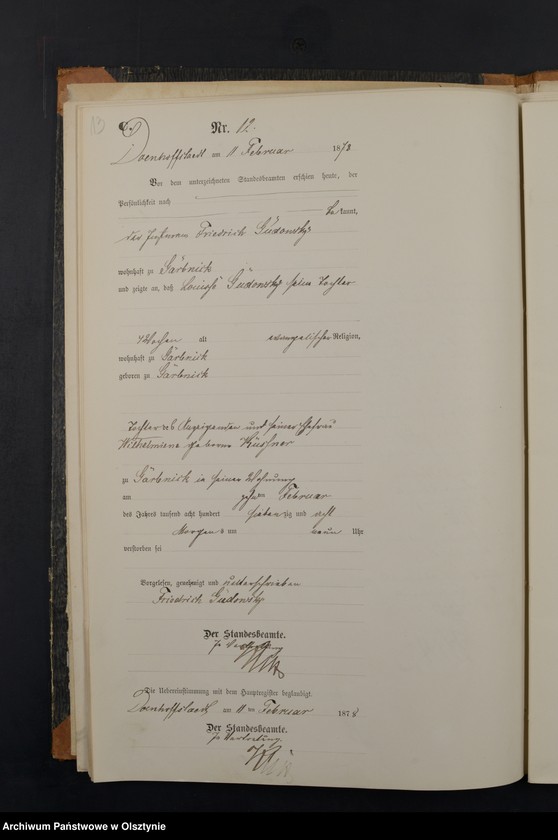 13
C.
Nr. 12.
Doenhoffstaedt am 11 Februar 1878
Vor dem unterzeichneten Standesbeamten erschien heute, der
Persönlichkeit nach
be kannt,
der Friedrich Gudowsky
wohnhaft zu Garbnick
und zeigte an, daß Louise Gudowsky seine Tochter
Wochen alt evangelischer Religion,
wohnhaft zu Garbnick
geboren zu Garbnick
Tochter des Anzeigenden und seiner Ehefrau
Wilhelmine geborene
zu Garbnick in seiner Wohnung
am zehn ten Februar
des Jahrs tausend acht hundert sieben zig und acht
Morgens um neun Uhr
verstorben sei
Vorgelesen, genehmigt und unterschrieben
Friedrich Gudowsky
Der Standesbeamte.
In Vertretung
Die Uebereinstimmung mit dem Hauptregister beglaubigt.
Doenhoffstaedt am 11 ten Februar 1878
Der Standesbeamte.
In Vertretung
Archiwum Państwowe w Olsztynie